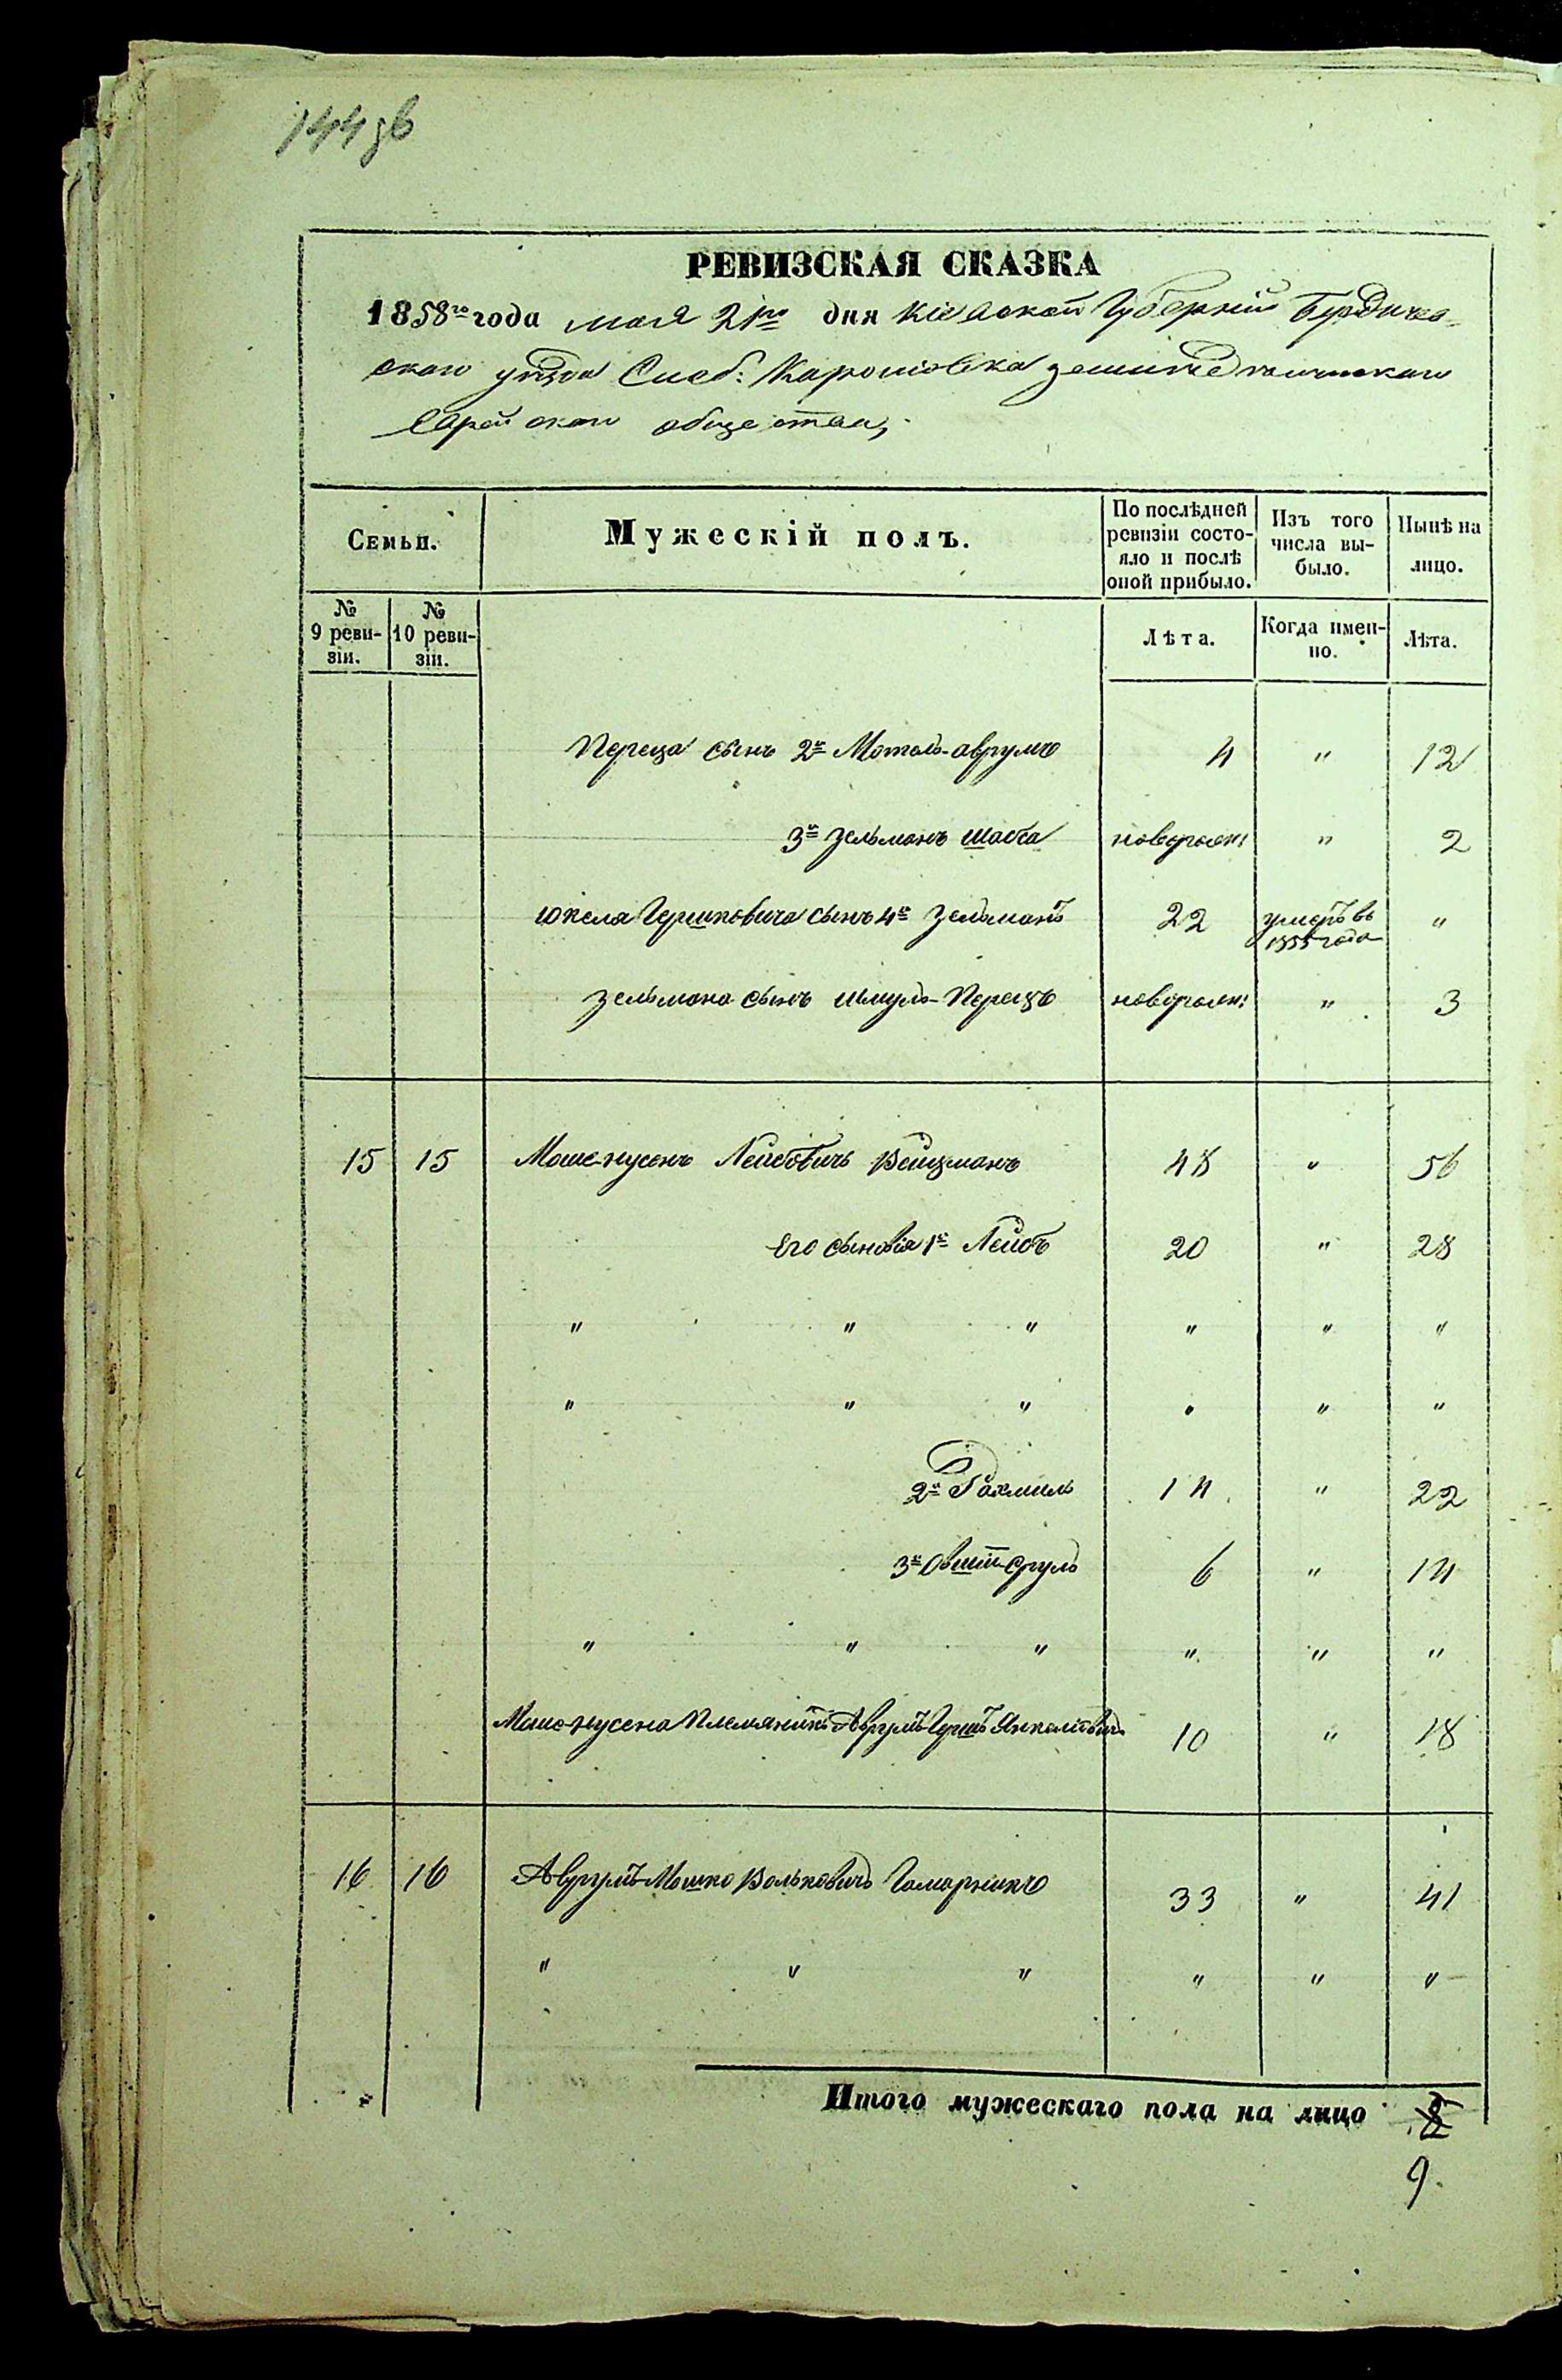 144 зв
РЕВИЗСКАЯ СКАЗКА
1858го года мая 21го дня Кіевской Губерніи Бердичев-
скаго уѣзда Каролювка земледѣльческаго
Еврейскаго общества,
Семьи.
Мужескій полъ.
По послѣдней ревизіи состо-яло и послѣ оной прибыло.
Изъ того числа вы-было.
Нынѣ на лицо.
№ 9 реви-зіи.
№ 10 реви-зіи.
Лѣта.
Когда имен-но.
Лѣта.
Переца сынъ 2й Мотель-аврумъ 4 " 12
3й Зельманъ шабса новорожд: " 2
Юкеля Гершковича сынъ 4й Зельманъ 22 умеръ въ 1855 года "
Зельмана сынъ Шмуль-Перецъ новорожд: " 3
15 15 Моше-нусенъ Лейбовичъ Вейцманъ 48 " 56
Его сыновія 1й Лейбъ 20 " 28
" " " " " "
" " " " " "
2й Рахмиль 14 " 22
3й Овшій-Сруль 6 " 14
" " " " " "
Моше-нусена племянникъ Аврумъ Гершъ Янкелевичъ 10 " 18
16 16 Аврумъ-Мошко Вольковичъ Гамарникъ 33 " 41
" " " " " "
Итого мужескаго пола на лицо 8
9.